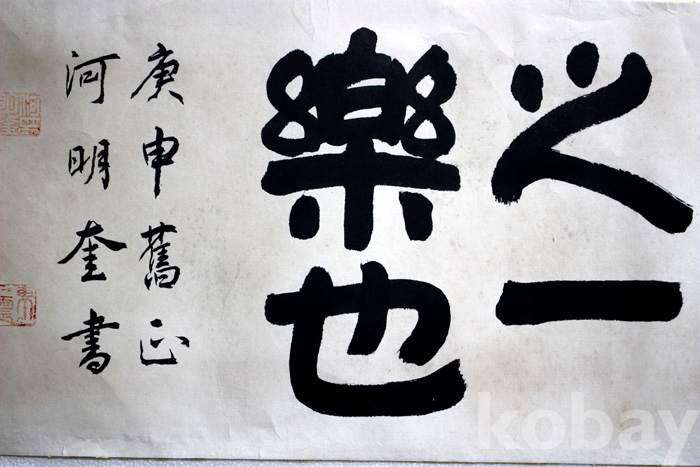 之一
樂也
庚申舊正
河明奎書
kobay